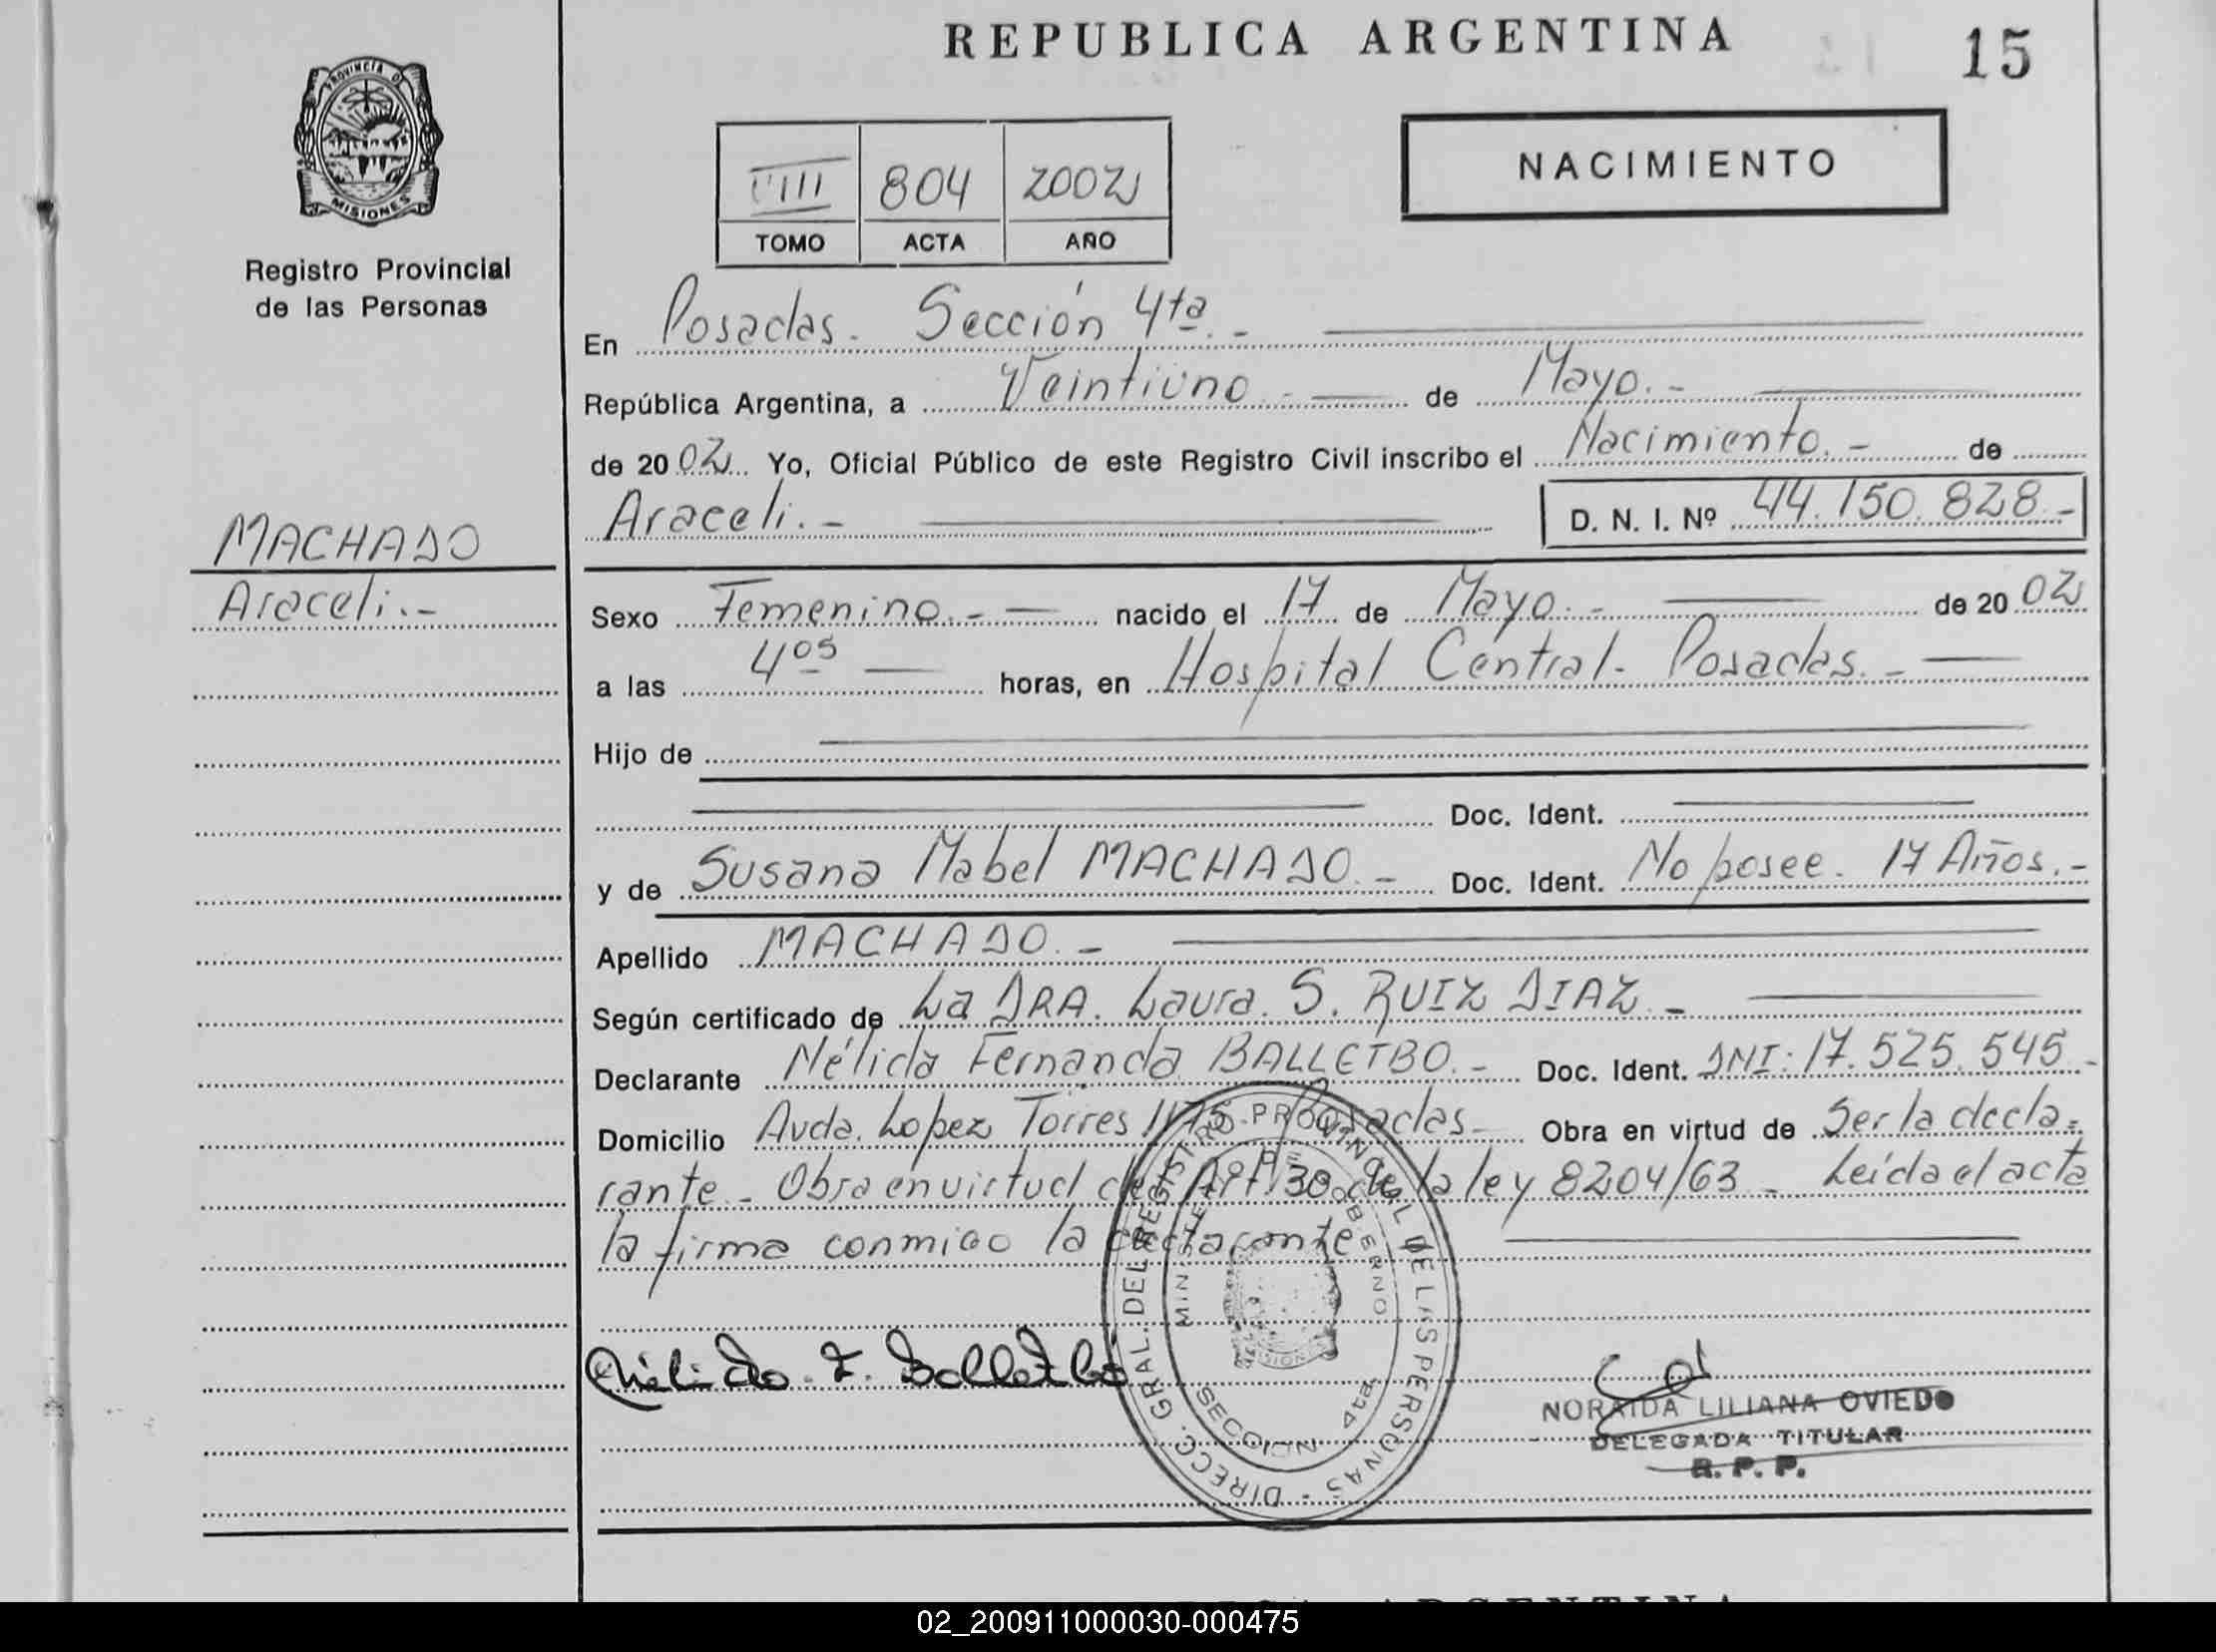 REPUBLICA ARGENTINA
15
PROVINCIA DE
MISIONES
Registro Provincial
de las Personas
VIII 804 2002
TOMO ACTA AÑO
NACIMIENTO
En Posadas. Sección 4ta.-
República Argentina, a Veintiuno.- de Mayo.-
de 2002 Yo, Oficial Público de este Registro Civil inscribo el Nacimiento.- de
Araceli.- D. N. I. Nº 44.150.828.-
MACHADO
Araceli.-
Sexo Femenino.- nacido el 17 de Mayo.- de 2002
a las 4 05 horas, en Hospital Central. Posadas.-
Hijo de
Doc. Ident.
y de Susana Mabel MACHADO.- Doc. Ident. No posee. 17 Años.-
Apellido MACHADO.-
Según certificado de La DRA. Laura. S. RUIZ DIAZ.-
Declarante Nélida Fernanda BALLETBO.- Doc. Ident. DNI: 17.525.545.-
Domicilio Avda. Lopez Torres 1175 Posadas- Obra en virtud de Ser la decla=
rante.- Obra en virtud del Art. 30 de la ley 8204/63- Leída el acta
la firma conmigo la declarante
DIRECC. GRAL. DEL REGISTRO PROVINCIAL DE LAS PERSONAS -
MINISTERIO DE GOBIERNO
SECCION 4ta.
Nélida F. Balletbo
NORAIDA LILIANA OVIEDO
DELEGADA TITULAR
R. P. P.
REPUBLICA ARGENTINA
02_200911000030-000475